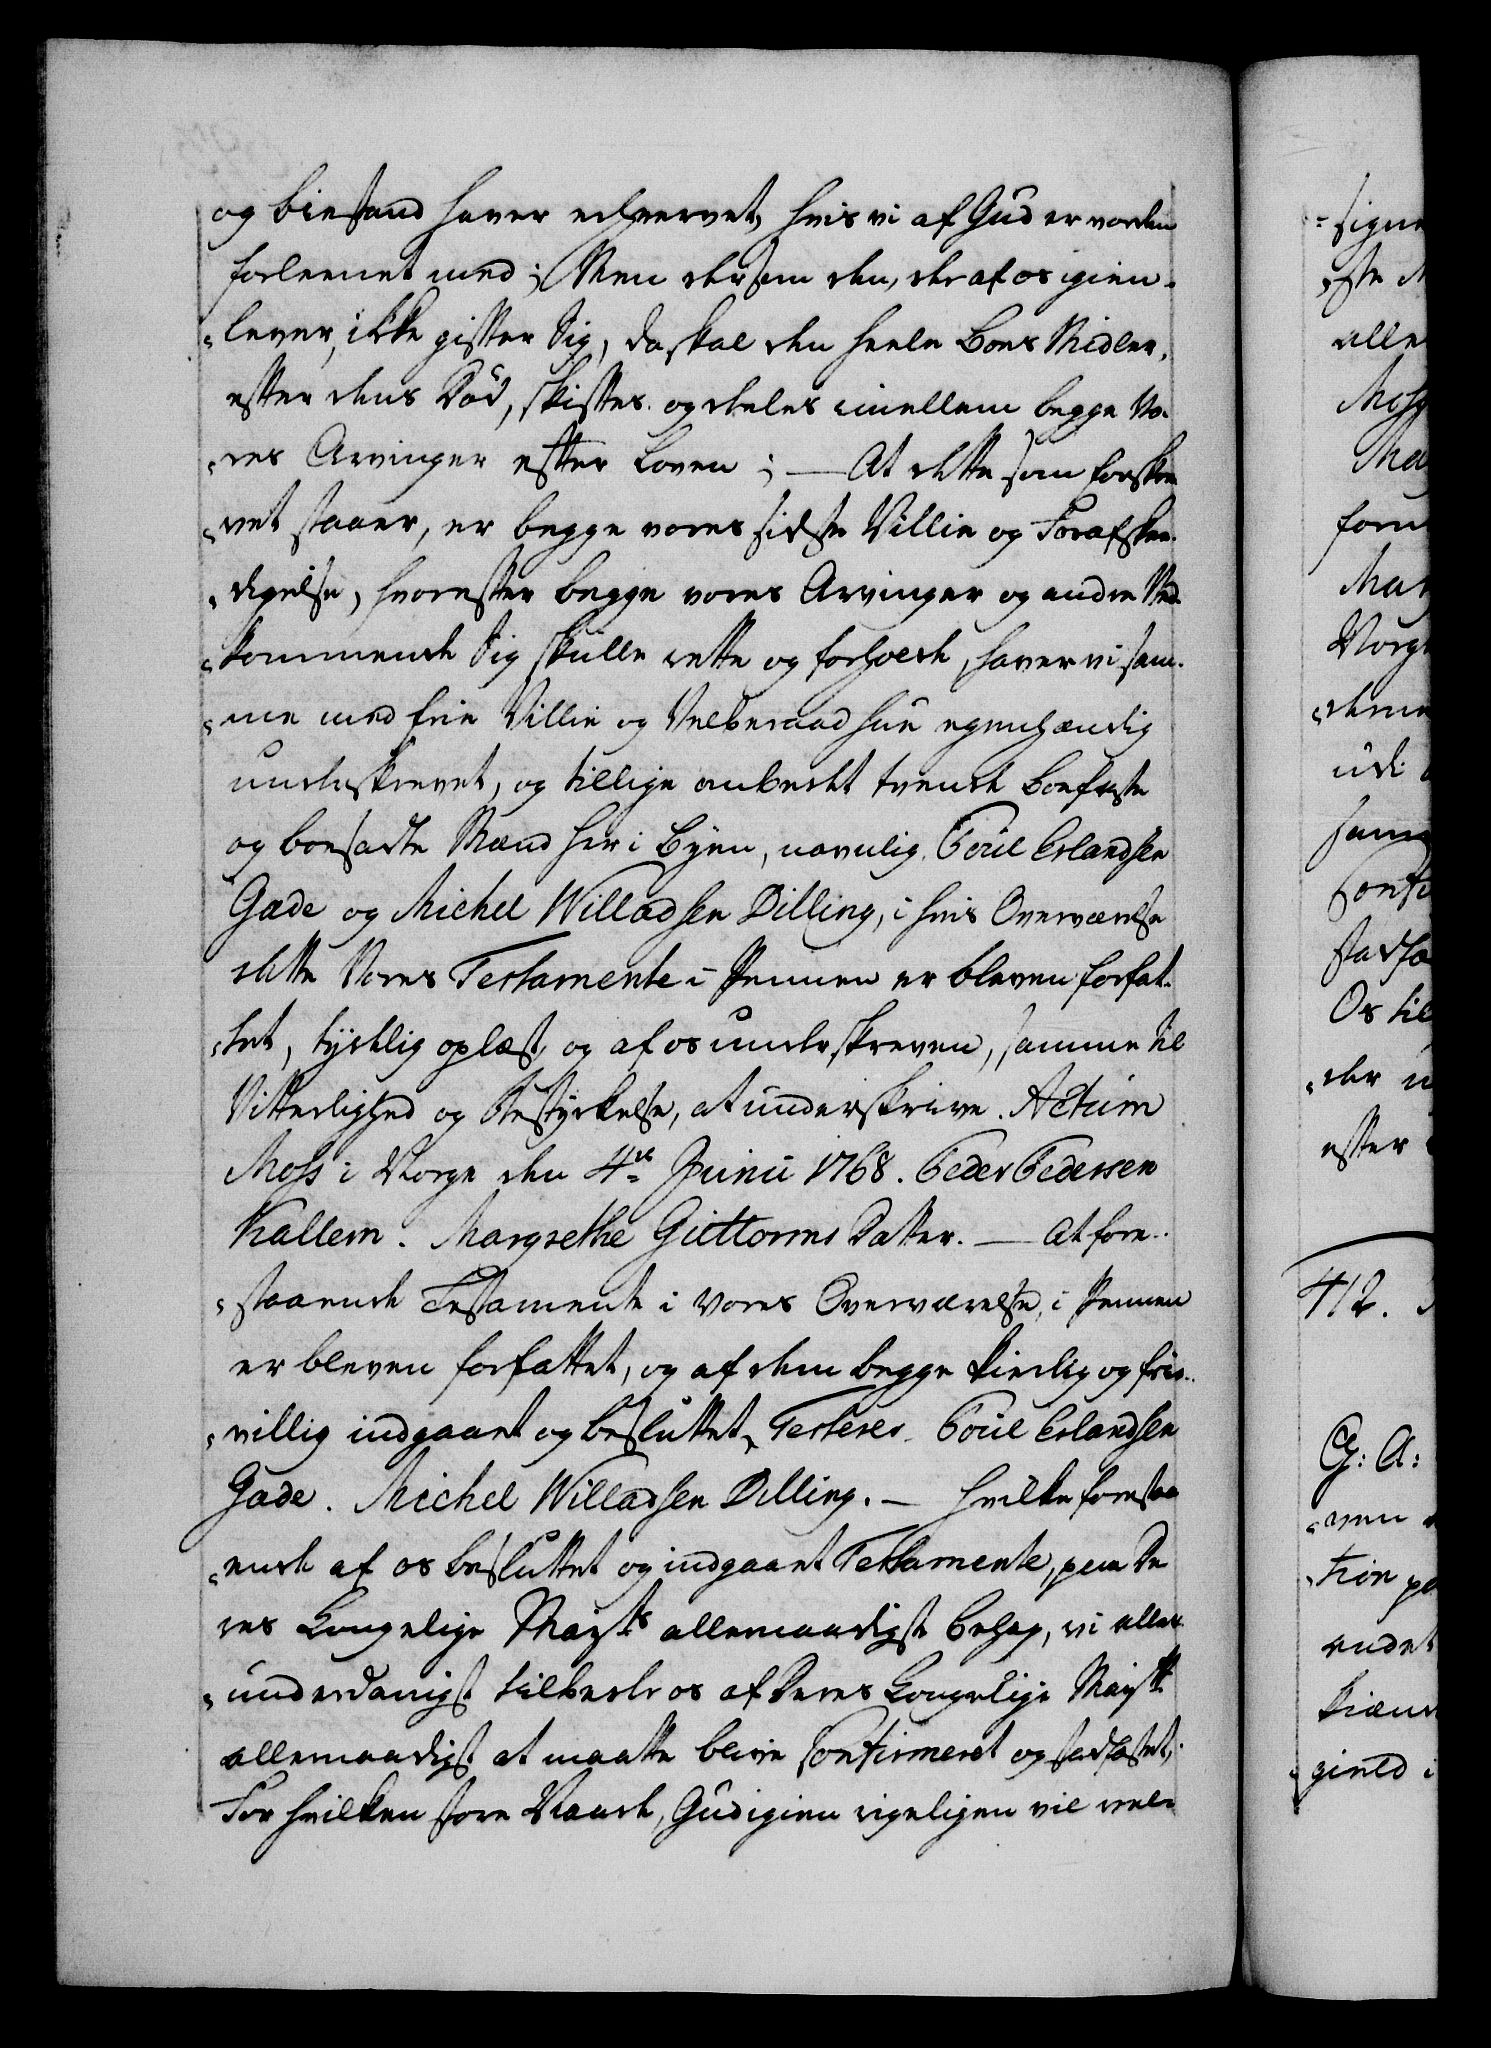 og biestand haver erhvervet, hvis vi af Gud er vorden
forleenet med; Men dersom den, der af os igien-
lever, ikke gifter Sig, da skal den heele Boes Midler,
efter dens Död, skiftes og deeles imellem begge Vo-
res Arvinger efter Loven; — At dette som forskre
vet staaer, er begge vores sidste Villie og Foraffskee-
digelse, hvorefter begge vores Arvinger og andre Ved-
kommende Sig skulle rette og forholde, haver vi sam-
me med frie Villie og Velberaad hue egenhændig
underskrevet, og tillige ombedet tvende Boefaste
og boesadte Mænd her i Byen, navnlig Poül Erlandsen
Gade og Michel Willadsen Dilling, i hvis Overværelse
dette Vores Testamente i Pennen er bleven forfat-
tet, tydelig oplæst, og af os underskreven, samme til
Vitterlighed og Bestyrkelse, at underskrive. Actum
Moss i Norge den 4de Junii 1768. Peder Pedersen
Kallem. Margrethe Guttorms Datter. — At fore-
staaende Testamente i vores Overværelse, i Pennen
er bleven forfattet, og af dem begge kierlig og frie-
villig indgaaet og besluttet, Testeres. Poül Erlandsen
Gade. Michel Willadsen Dilling. — hvilke forestaa
ende af os besluttet og indgaaet Testamente, paa De
res Kongelige Mayts allernaadigste behag, vi aller-
underdanigst tilbeder os af Deres Kongelige Mayt
allernaadigst at maatte blive Confirmeret og stadfæstet,
For hvilken store Naade, Gud igien rigeligen vil vel-
signe
ste
alle
Moss
form
Norge
udi
Os til
der
efter
412.
G: A:
andet